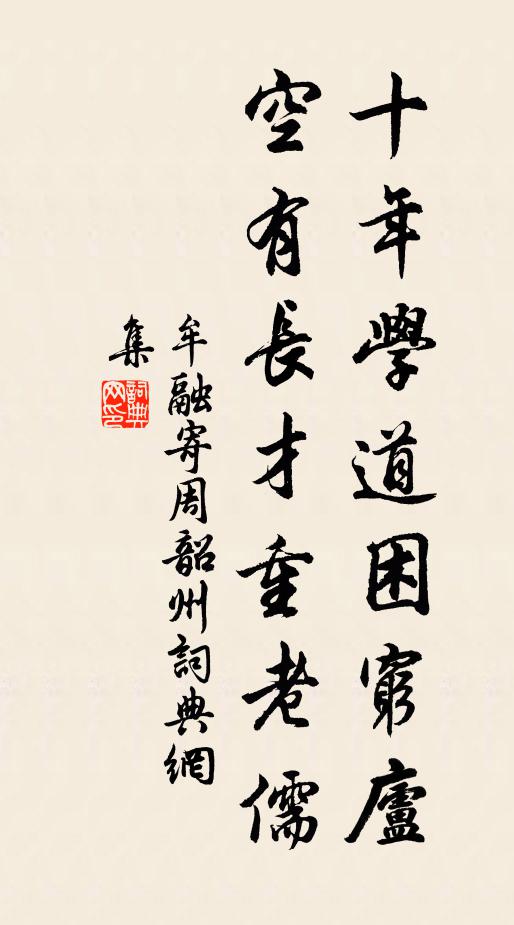 十年學道困窮廬
空有長才重老儒
牟融寄周韶州詞典網
集
詞典
网印